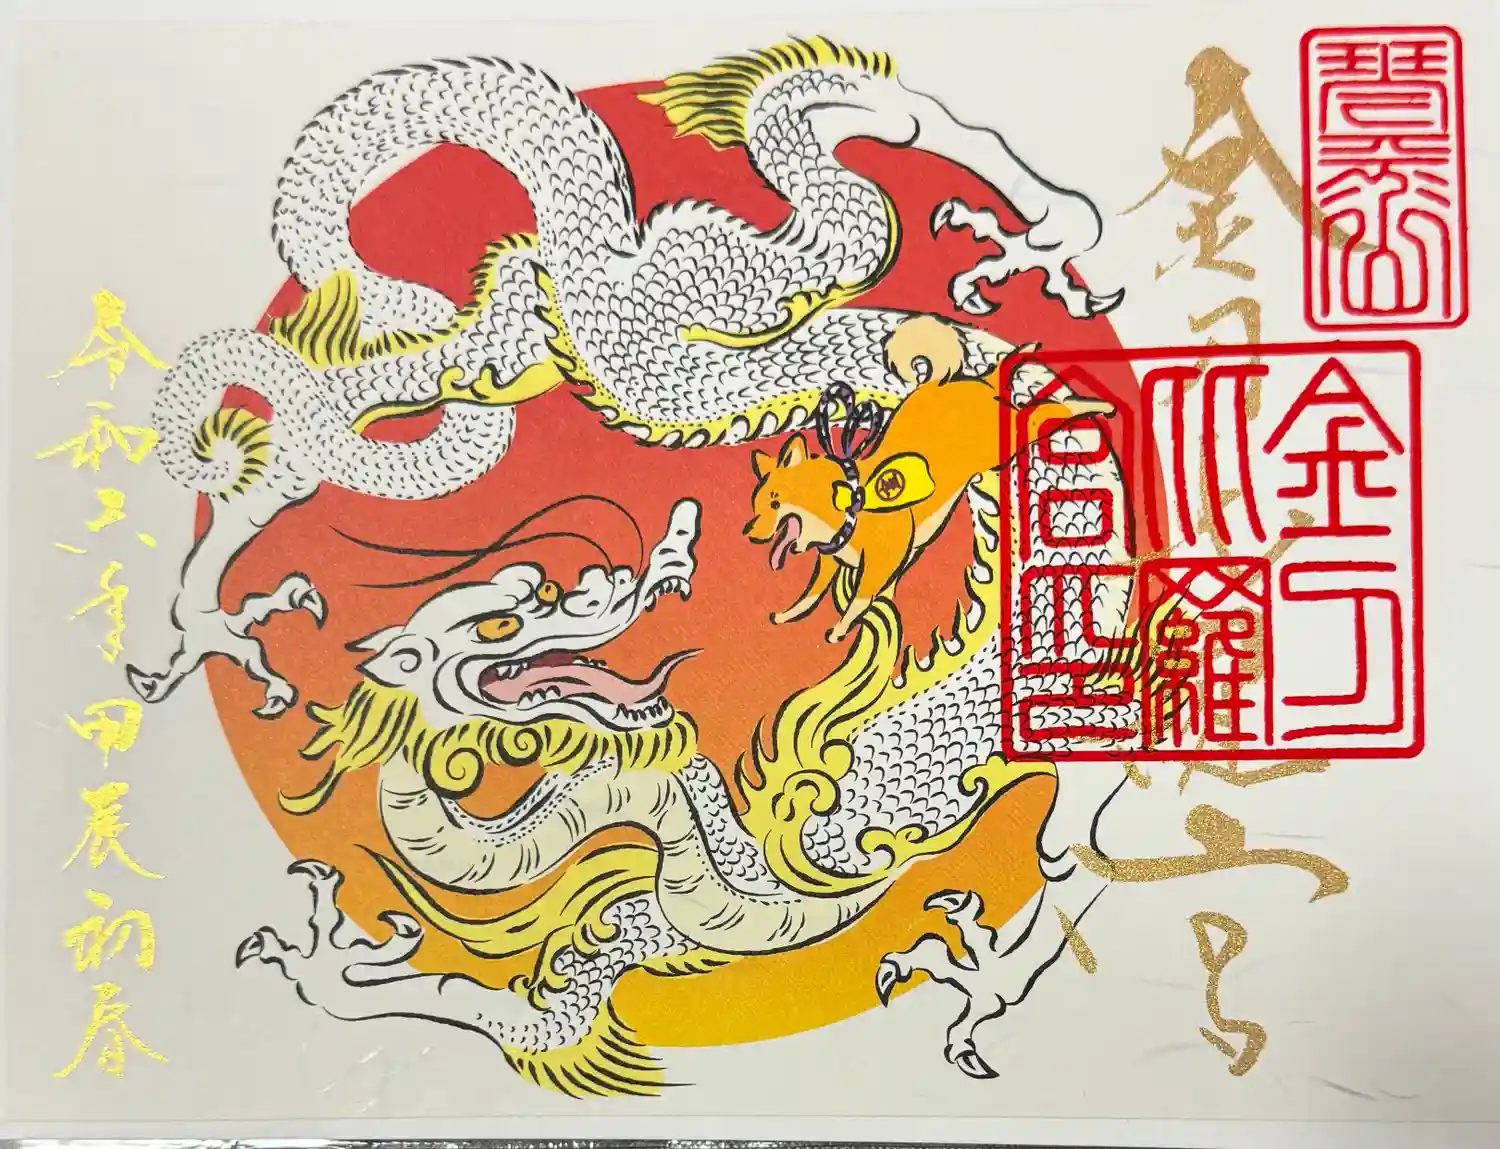 琴平山
金刀比羅宮
金刀
比羅
宮
令和六年甲辰初春